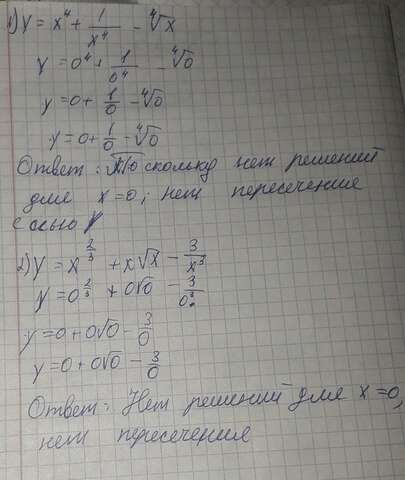 1) y = x⁴ + 1/x⁴ - ⁴√x
y = 0⁴ + 1/0⁴ - ⁴√0
y = 0 + 1/0 - ⁴√0
y = 0 + 1/0 - ⁴√0
Ответ: Поскольку нет решений
для x = 0, нет пересечение
с осью y
2) y = x^(2/3) + x√x - 3/x³
y = 0^(2/3) + 0√0 - 3/0³
y = 0 + 0√0 - 3/0
y = 0 + 0√0 - 3/0
Ответ: Нет решений для x = 0,
нет пересечения